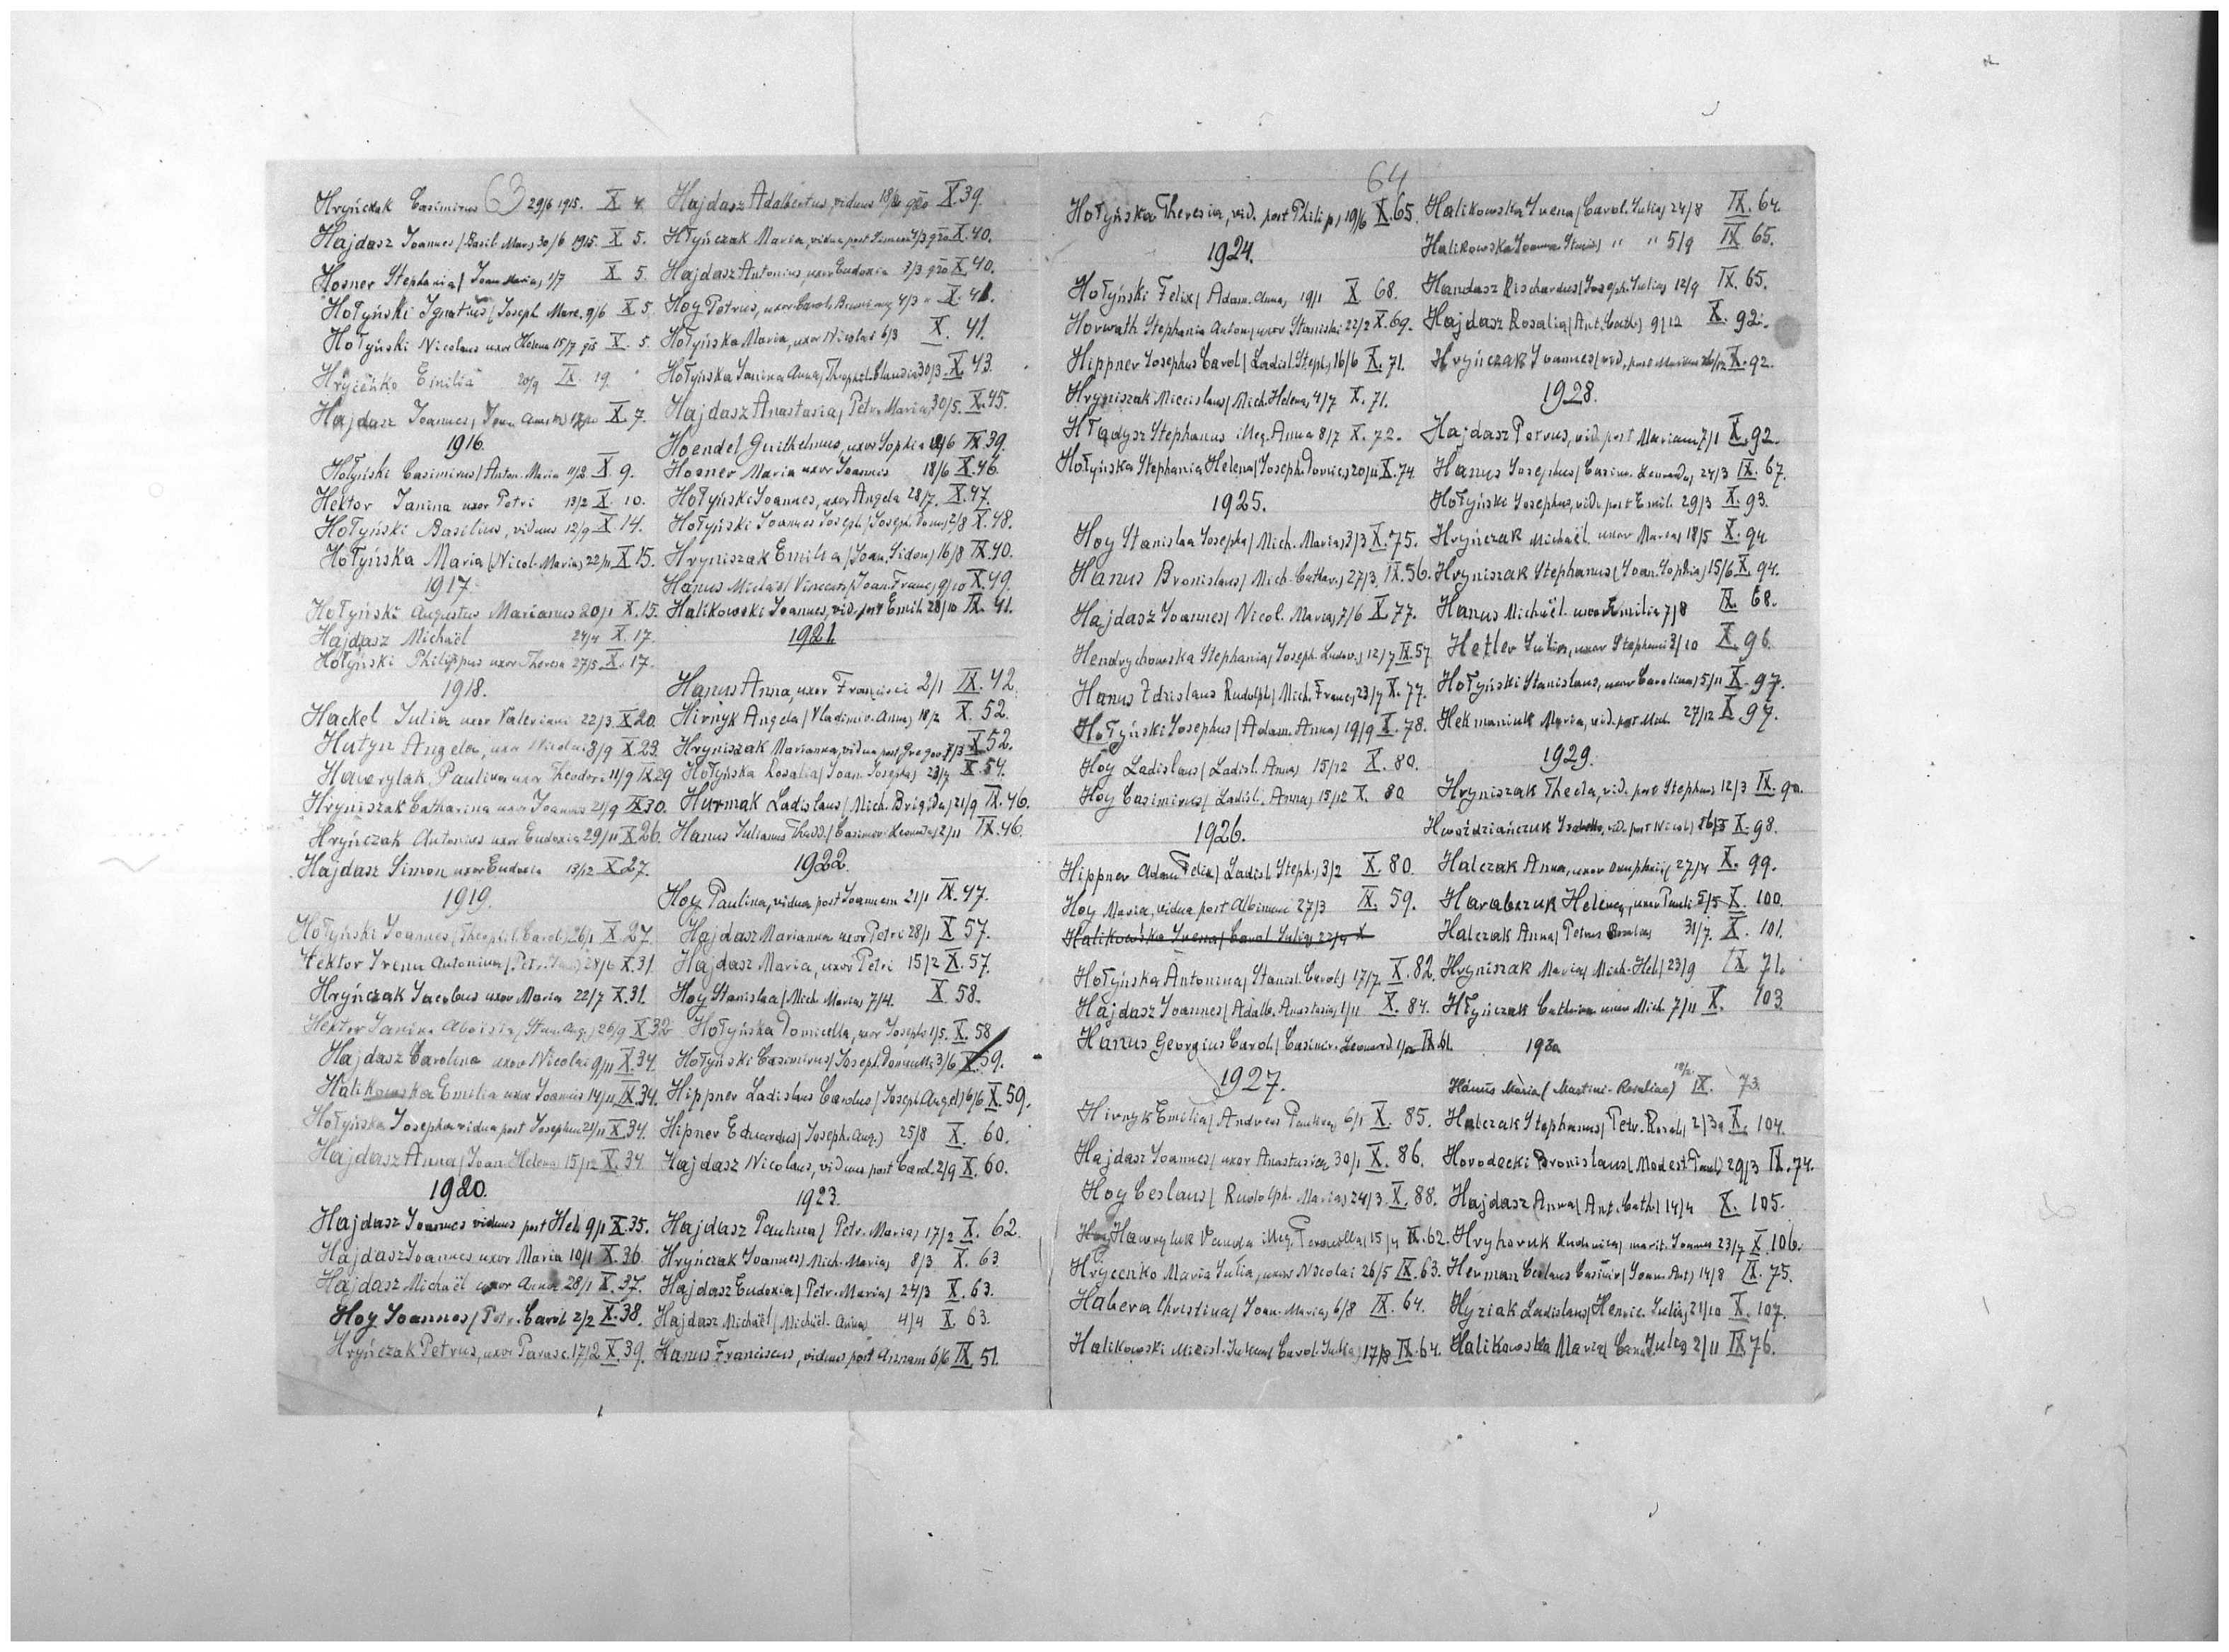 63
Hryńczak Casimirus 29/6 1915. X 4.
Hajdasz Joannes (Basil. Mar.) 30/6 1915. X 5.
Hosner Stephania (Joan. Maria) 1/7 X 5.
Hołyński Ignatius (Joseph. Mare. 9/6 X 5
Hołyński Nicolaus uxor Helena 15/7 915 X. 5.
Hryćenko Emilia 20/9 IX. 19.
Hajdasz Joannes, X. 7.
1916.
Hołyński Casimirus (Anton. Maria 11/2. X. 9.
Hektor Janina uxor Petri 13/2 X. 10.
Hołyński Basilius, viduus 12/9 X 14.
Hołyńska Maria (Nicol. Maria) 22/11 X 15.
1917.
Hołyński Augustus Marianus 20/1 X. 15.
Hajdasz Michaël 24/4 X. 17.
Hołyński Philippus uxor Theresa 27/5. X. 17.
1918.
Hackel Julia uxor Valeriani 22/3. X 20.
Hutyn Angela, uxor Nicolai 8/9 X 23.
Hawrylak Paulina uxor Theodori 11/9 IX 29
Hryniszak Catharina uxor Joannis 21/9 IX 30.
Hryńczak Antonius uxor Eudoxia 29/11 X 26.
Hajdasz Simon uxor Eudoxia 13/12 X 27.
1919.
Hołyński Joannes (Theophil. Carol.) 26/1 X 27.
Hektor Irena Antonina (Petr. 28/6 X. 31.
Hryńczak Jacobus uxor Maria 22/7 X. 31.
Hektor Janina Aloisia, 26/9 X 32
Hajdasz Carolina uxor Nicolai 9/11 X. 34.
Halikowska Emilia uxor Joannis 14/11 IX. 34.
Hołyńska Josepha vidua post Josephum 21/11 X 34.
Hajdasz Anna (Joan. Helena) 15/12 X. 34
1920.
Hajdasz Joannes viduus post Hel. 9/1 X. 35.
Hajdasz Joannes uxor Maria 10/1 X. 36.
Hajdasz Michaël uxor Anna 28/1 X. 37.
Hoy Joannes (Petr. Carol. 2/2 X. 38.
Hryńczak Petrus, uxor Parasc. 17/2 X. 39.
Hajdasz Adalbertus, viduus 18/2 920 X. 39.
Hłyńczak Maria, vidua post Simeon 1/3 920 X. 40.
Hajdasz Antonius, uxor Eudoxia 3/3 920 X. 40.
Hoy Petrus, uxor Carol. 4/3 " X. 41.
Hołyńska Maria, uxor Nicolai 6/3 X. 41.
Hołyńska Janina Anna, Theophil. Claudia 30/3. X. 43.
Hajdasz Anastasia, Petr. Maria, 30/5. X. 45.
Hoendel Guilhelmus, uxor Sophia /6 IX 39.
Hosner Maria uxor Joannis 18/6 X. 46.
Hołyński Joannes, uxor Angela 28/7. X. 47.
Hołyński Joannes Joseph. (Joseph. Dom.) 2/8 X. 48.
Hryniszak Emilia (Joan. Sidon.) 16/8 IX. 40.
Hanus Michaël Vincent. (Joan. Franc. 9/10 X. 49.
Halikowski Joannes, vid. post Emil. 28/10 IX. 41.
1921.
Hanus Anna, uxor Francisci 2/1 IX. 42.
Hirnyk Angela (Vladimir. Anna) 18/2 X. 52.
Hryniszak Marianna, vidua post Gregor. 7/3 X 52.
Hołyńska Rosalia (Joan. Josepha) 23/4 X. 54.
Hurmak Ladislaus (Mich. Brigida) 21/9 IX. 46.
Hanus Julianus Thadd. (Casimir. Leonarda) 2/11 IX. 46.
1922.
Hoy Paulina, vidua post Joannem 21/1 IX. 47.
Hajdasz Marianna uxor Petri 28/1 X 57.
Hajdasz Maria, uxor Petri 15/2 X. 57.
Hoy Stanislaa (Mich. Maria) 7/4. X. 58.
Hołyńska Domicella, uxor Josephi 1/5. X. 58
Hołyński Casimirus (Joseph. Domicella 3/6 X 59.
Hippner Ladislaus Carolus (Joseph. Angel.) 6/6 X. 59.
Hipner Eduardus (Joseph. Ang.) 25/8 X. 60.
Hajdasz Nicolaus, viduus post Carol. 2/9 X. 60.
1923.
Hajdasz Paulina (Petr. Maria) 17/2 X. 62.
Hryńczak Joannes (Mich. Maria) 8/3 X. 63
Hajdasz Eudoxia (Petr. Maria) 24/3 X. 63.
Hajdasz Michaël (Michaël. Anna) 4/4 X. 63.
Hanus Franciscus, viduus post Annam 6/6 IX. 51.
64
Hołyńska Theresia, vid. post Philip. 19/6 X. 65.
1924.
Hołyński Felix (Adam. Anna, 19/1 X 68.
Horwath Stephania Anton. uxor Stanislai 22/2 X. 69.
Hippner Josephus Carol (Ladisl. Steph.) 16/6 X. 71.
Hryniszak Miecislaus (Mich. Helena, 4/7 X. 71.
Hładysz Stephanus illeg. Anna 8/7 X. 72.
Hołyńska Stephania Helena (Joseph. Domic.) 20/11 X. 74.
1925.
Hoy Stanislaa Josepha (Mich. Maria) 3/3 X. 75.
Hanus Bronislaus (Mich. Cathar.) 27/3. IX. 56.
Hajdasz Joannes (Nicol. Maria) 7/6 X. 77.
Hendrychowska Stephania, Joseph. Ludov.) 12/7 IX. 57
Hanus Zdzislaus Rudolph. (Mich. Franc.) 23/7 X. 77.
Hołyński Josephus (Adam. Anna) 19/9 X. 78.
Hoy Ladislaus (Ladisl. Anna) 15/12 X. 80.
Hoy Casimirus (Ladisl. Anna) 15/12 X. 80
1926.
Hippner Adam Felix (Ladisl. Steph.) 3/2 X. 80.
Hoy Maria, vidua post Albinum 27/3 IX. 59.
Halikowska Irena (Carol. Julia) 22/4 X
Hołyńska Antonina (Stanisl. Carol.) 17/7. X. 82.
Hajdasz Joannes (Adalb. Anastasia) 1/11 X. 84.
Hanus Georgius Carol. (Casimir. Leonard. IX. 61.
1927.
Hirnyk Emilia (Andreas 6/1 X. 85.
Hajdasz Joannes (uxor Anastasia 30/1 X. 86.
Hoy Ceslaus (Rudolph. Maria) 24/3. X. 88.
Hawryluk Vanda illeg. 15/4 IX. 62.
Hryćenko Maria Julia, uxor Nicolai 26/5 IX. 63.
Habera Christina (Joan. Maria) 6/8 IX. 64.
Halikowski Carol. Julia) IX. 64.
Halikowska Irena (Carol. Julia) 24/8 IX. 64.
Halikowska Joanna " " 5/9 IX 65.
Handasz Rischardus (Joseph. Julia) 12/9 IX. 65.
Hajdasz Rosalia (Ant. Cath.) 9/12 X. 92.
Hryńczak Joannes (vid. post Mariam X. 92.
1928.
Hajdasz Petrus, vid. post Mariam 7/1 X. 92.
Hanus Josephus (Casim. Leonarda, 24/3 IX. 67.
Hołyński Josephus, vid. post Emil. 29/3 X. 93.
Hryńczak Michaël. uxor Maria, 18/5 X. 94
Hryniszak Stephanus (Joan. Sophia) 15/6 X. 94.
Hanus Michaël. uxor Emilia 7/8 IX. 68.
Hetler Julia, uxor Stephani 3/10 X. 96.
Hołyński Stanislaus, uxor Carolina, 5/11 X. 97.
Hekmaniuk Maria, vid. post Mich. 27/12 X 97.
1929.
Hryniszak Thecla, vid. post Stephan. 12/3 IX. 70.
Hwoździańczuk vid. post Nicol. X. 98.
Halczak Anna, uxor Onuphrii 27/4 X. 99.
Harabczuk Helena, uxor Pauli 5/5 X. 100.
Halczak Anna (Petrus 31/7. X. 101.
Hryniszak Maria (Mich. Hel.) 23/9 IX 71.
Hłyńczak Catharina uxor Mich. 7/11 X. 103
1930
Hanus Maria (Martini - Rosalinae) IX. 73.
Halczak Stephanus, Petr. Rosal. X. 104.
Horodecki Bronislaus (Modest. Paul.) 29/3 IX. 74.
Hajdasz Anna (Ant. Cath.) 14/4 X. 105.
Hryhoruk Ludovica, marit. Joannes 23/4 X. 106.
Herman Ceslaus Casimir (Joan. Ant.) 14/8 IX. 75.
Hyziak Ladislaus (Henric. Julia) 21/10 X. 107.
Halikowska Maria (Carol. Julia 2/11 IX 76.